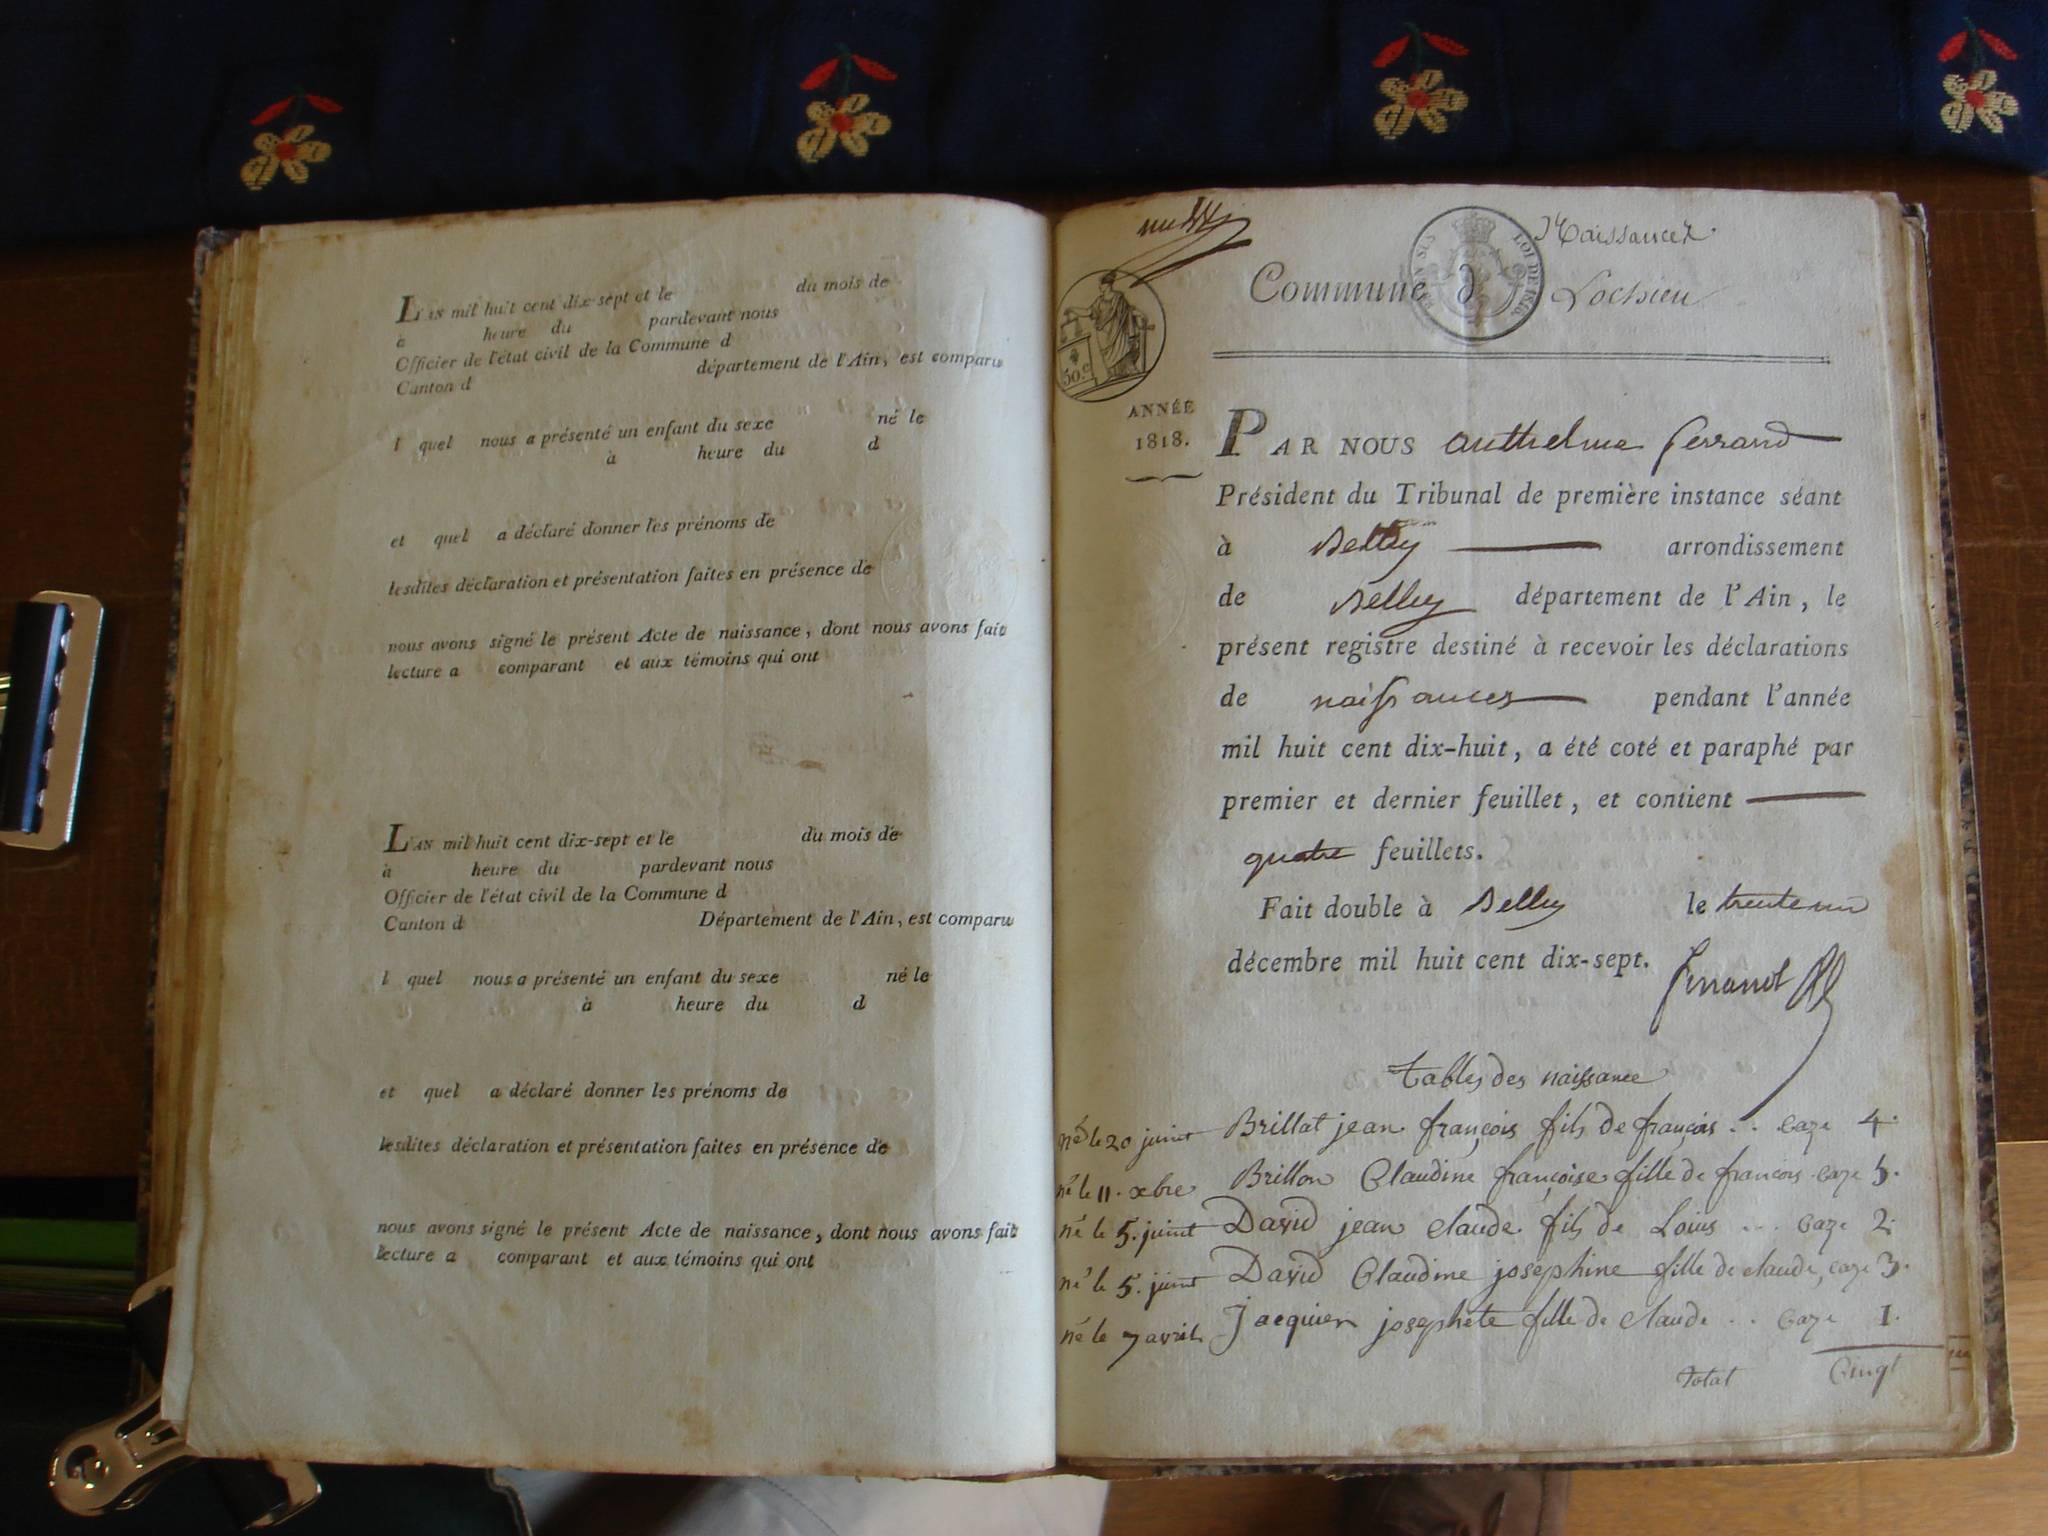 L'AN mil huit cent dix-sept et le du mois de
à heure du pardevant nous
Officier de l'état civil de la Commune d
Canton d département de l'Ain, est comparu
l quel nous a présenté un enfant du sexe né le
à heure du d
et quel a déclaré donner les prénoms de
lesdites déclaration et présentation faites en présence de
nous avons signé le présent Acte de naissance, dont nous avons fait
lecture a comparant et aux témoins qui ont
L'AN mil huit cent dix-sept et le du mois de
à heure du pardevant nous
Officier de l'état civil de la Commune d
Canton d Département de l'Ain, est comparu
l quel nous a présenté un enfant du sexe né le
à heure du d
et quel a déclaré donner les prénoms de
lesdites déclaration et présentation faites en présence de
nous avons signé le présent Acte de naissance, dont nous avons fait
lecture a comparant et aux témoins qui ont
Naissances
LOI DE 1816
Commune d Lochieu
50.c
ANNÉE
1818.
PAR NOUS Anthelme Ferrand
Président du Tribunal de première instance séant
à Belley arrondissement
de Belley département de l'Ain, le
présent registre destiné à recevoir les déclarations
de naissances pendant l'année
mil huit cent dix-huit, a été coté et paraphé par
premier et dernier feuillet, et contient
quatre feuillets.
Fait double à Belley le trente un
décembre mil huit cent dix-sept.
Tables des naissance
né le 20 juint Brillat jean françois fils de françois .. Caze 4.
né le 11. xbre Brillon Claudine françoise fille de francois Caze 5.
né le 5. juint David jean claude fils de Louis ... Caze 2.
né le 5. juint David Claudine josephine fille de claude, caze 3.
né le 7 avril Jacquier josephete fille de claude .. Caze 1.
Total Cinq